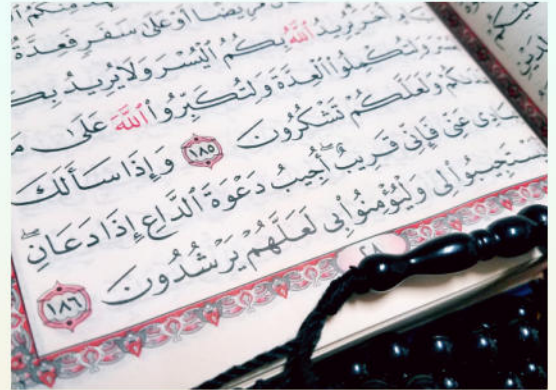 مَرِيضًا أَوْ عَلَىٰ سَفَرٍ فَعِدَّةٌ
أُخَرَ يُرِيدُ ٱللَّهُ بِكُمُ ٱلْيُسْرَ وَلَا يُرِيدُ بِكُ
وَلِتُكْمِلُوا۟ ٱلْعِدَّةَ وَلِتُكَبِّرُوا۟ ٱللَّهَ عَلَىٰ مَ
وَلَعَلَّكُمْ تَشْكُرُونَ ١٨٥ وَإِذَا سَأَلَكَ
ادِى عَنِّى فَإِنِّى قَرِيبٌ أُجِيبُ دَعْوَةَ ٱلدَّاعِ إِذَا دَعَانِ
سْتَجِيبُوا۟ لِى وَلْيُؤْمِنُوا۟ بِى لَعَلَّهُمْ يَرْشُدُونَ ١٨٦